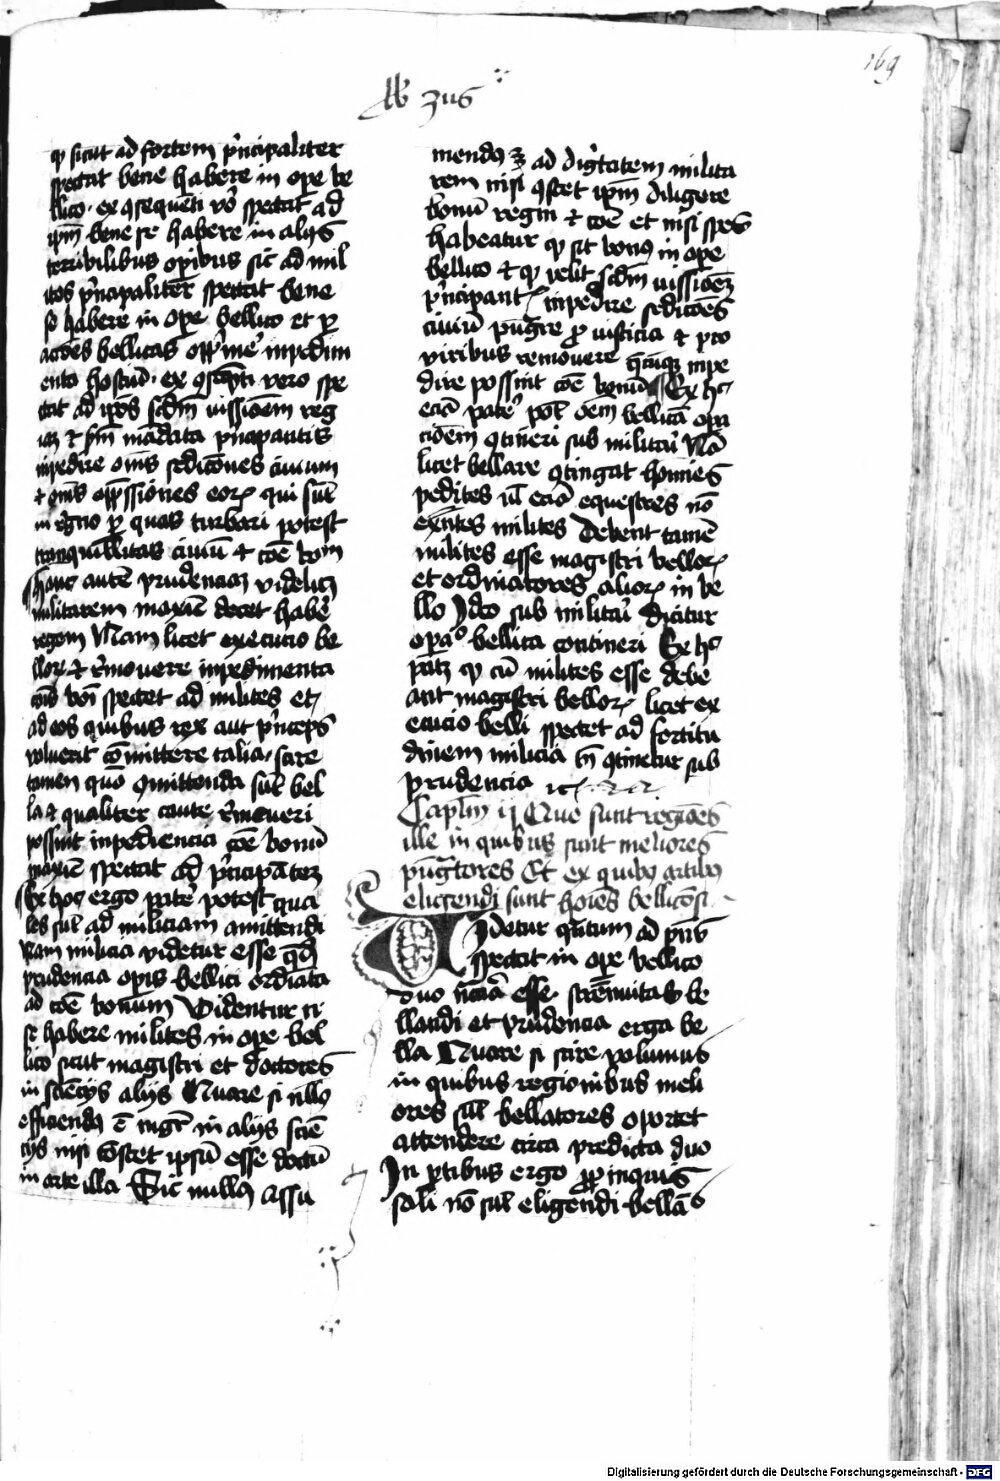 169
lib 3us
qͥ sicut ad fortem p̉ncipaliter
spectat bene habere in ope be
llico · ex ꝯsequēti vo̾ spectat ad
ip̄m bene se habere in alijs
terribilibus opibus sic ad mil
ites p̉ncipaliter spectat bene
se habere in ope bellico et ꝑ
actōēs bellicas opp̉me̾ inpedim
enta hostiū · ex ꝯsequēti vero spe
ctat ad ip̄os scd̄m iussiōem reg
iā ⁊ scd̄m mādata p̉ncipantis
inpedire om̄s sedicōnes ciuium
⁊ om̄s opp̄ssiones eoꝝ qui sūt
in regno ꝑ quas turbari potest
tranquillitas ciuiū ⁊ cōe bonū
hanc autē prudenciaꝫ videlicꝫ
militarem maxīe decet habe̾
regem Nam licet execucio be
lloꝝ ⁊ remouere inpedimenta
cōis boni spectet ad milites et
ad eos quibus rex aut p̉nceps
voluerit cōmittere talia · scire
tamen quō ꝯmittenda sūt bel
la ⁊ qualiter caute remoueri
possint inpediencia cōe bonū
maxīe spectat ad p̉ncipātem
Ex hoc ergo pate̾ potest qua
les sūt ad miliciam amittendi
Nam milicia videtur esse q̄dā
prudencia opis bellici ordīata
ad cōe bonum Videntur ti
se habere milites in ope bel
lico sicut magistri et doctores
in sciēcijs alijs Quare si nullꝰ
efficiendꝰ ē mgr̄ in alijs sciē
cijs nisi cōstet ipsū esse doctū
in arte illa Sic nullꝰ assu
mendꝰ ē ad dig̉tatem milita
rem nisi ꝯstet ip̄m diligere
bonū regni ⁊ cōe et nisi spes
habeatur qͥ sit bonꝰ in ope
bellico ⁊ qͥ velit scd̄m iussiōeꝫ
p̉ncipant̄ inpedire sediciōes
ciuiū pug̉re ꝓ iusticia ⁊ pro
viribus remouere q̄cūqꝫ inpe
dire possint cōe bonū Ex hͦ
eciā pate̾ pot̄ oēm bellicā opa
ciōem ꝯtineri sub militari Nā
licet bellare ꝯtingat homīes
pedites ul̄ eciā equestres nō
exn̄tes milites Debent tamē
milites esse magistri belloꝝ
et ordinatores alioꝝ in be
llo Ideo sub militari dicitur
opaͦ bellica contineri Ex hͦ
patꝫ qͥ cū milites esse debe
ant magistri belloꝝ licet ex
ecucio belli spectet ad fortitu
dinem milicia tn̄ ꝯtinetur sub
prudencia
Capl̄m ij Que sunt regiōēs
ille in quibus sunt meliores
pug̉tores Et ex quibꝰ artibꝰ
eligendi sunt hoīes bellicosi
Videtur q̄tum ad p̄ns
spectat in ope bellico
duo n̄ccīa esse strēnuitas be
llandi et prudencia erga be
lla Quare si scire volumus
in quibus regionibus meli
ores sūt bellatores oportet
attendere circa predicta duo
In ꝑtibus ergo ꝓpinquis
soli nō sūt eligendi bellātͦ
Digitalisierung gefördert durch die Deutsche Forschungsgemeinschaft - DFG